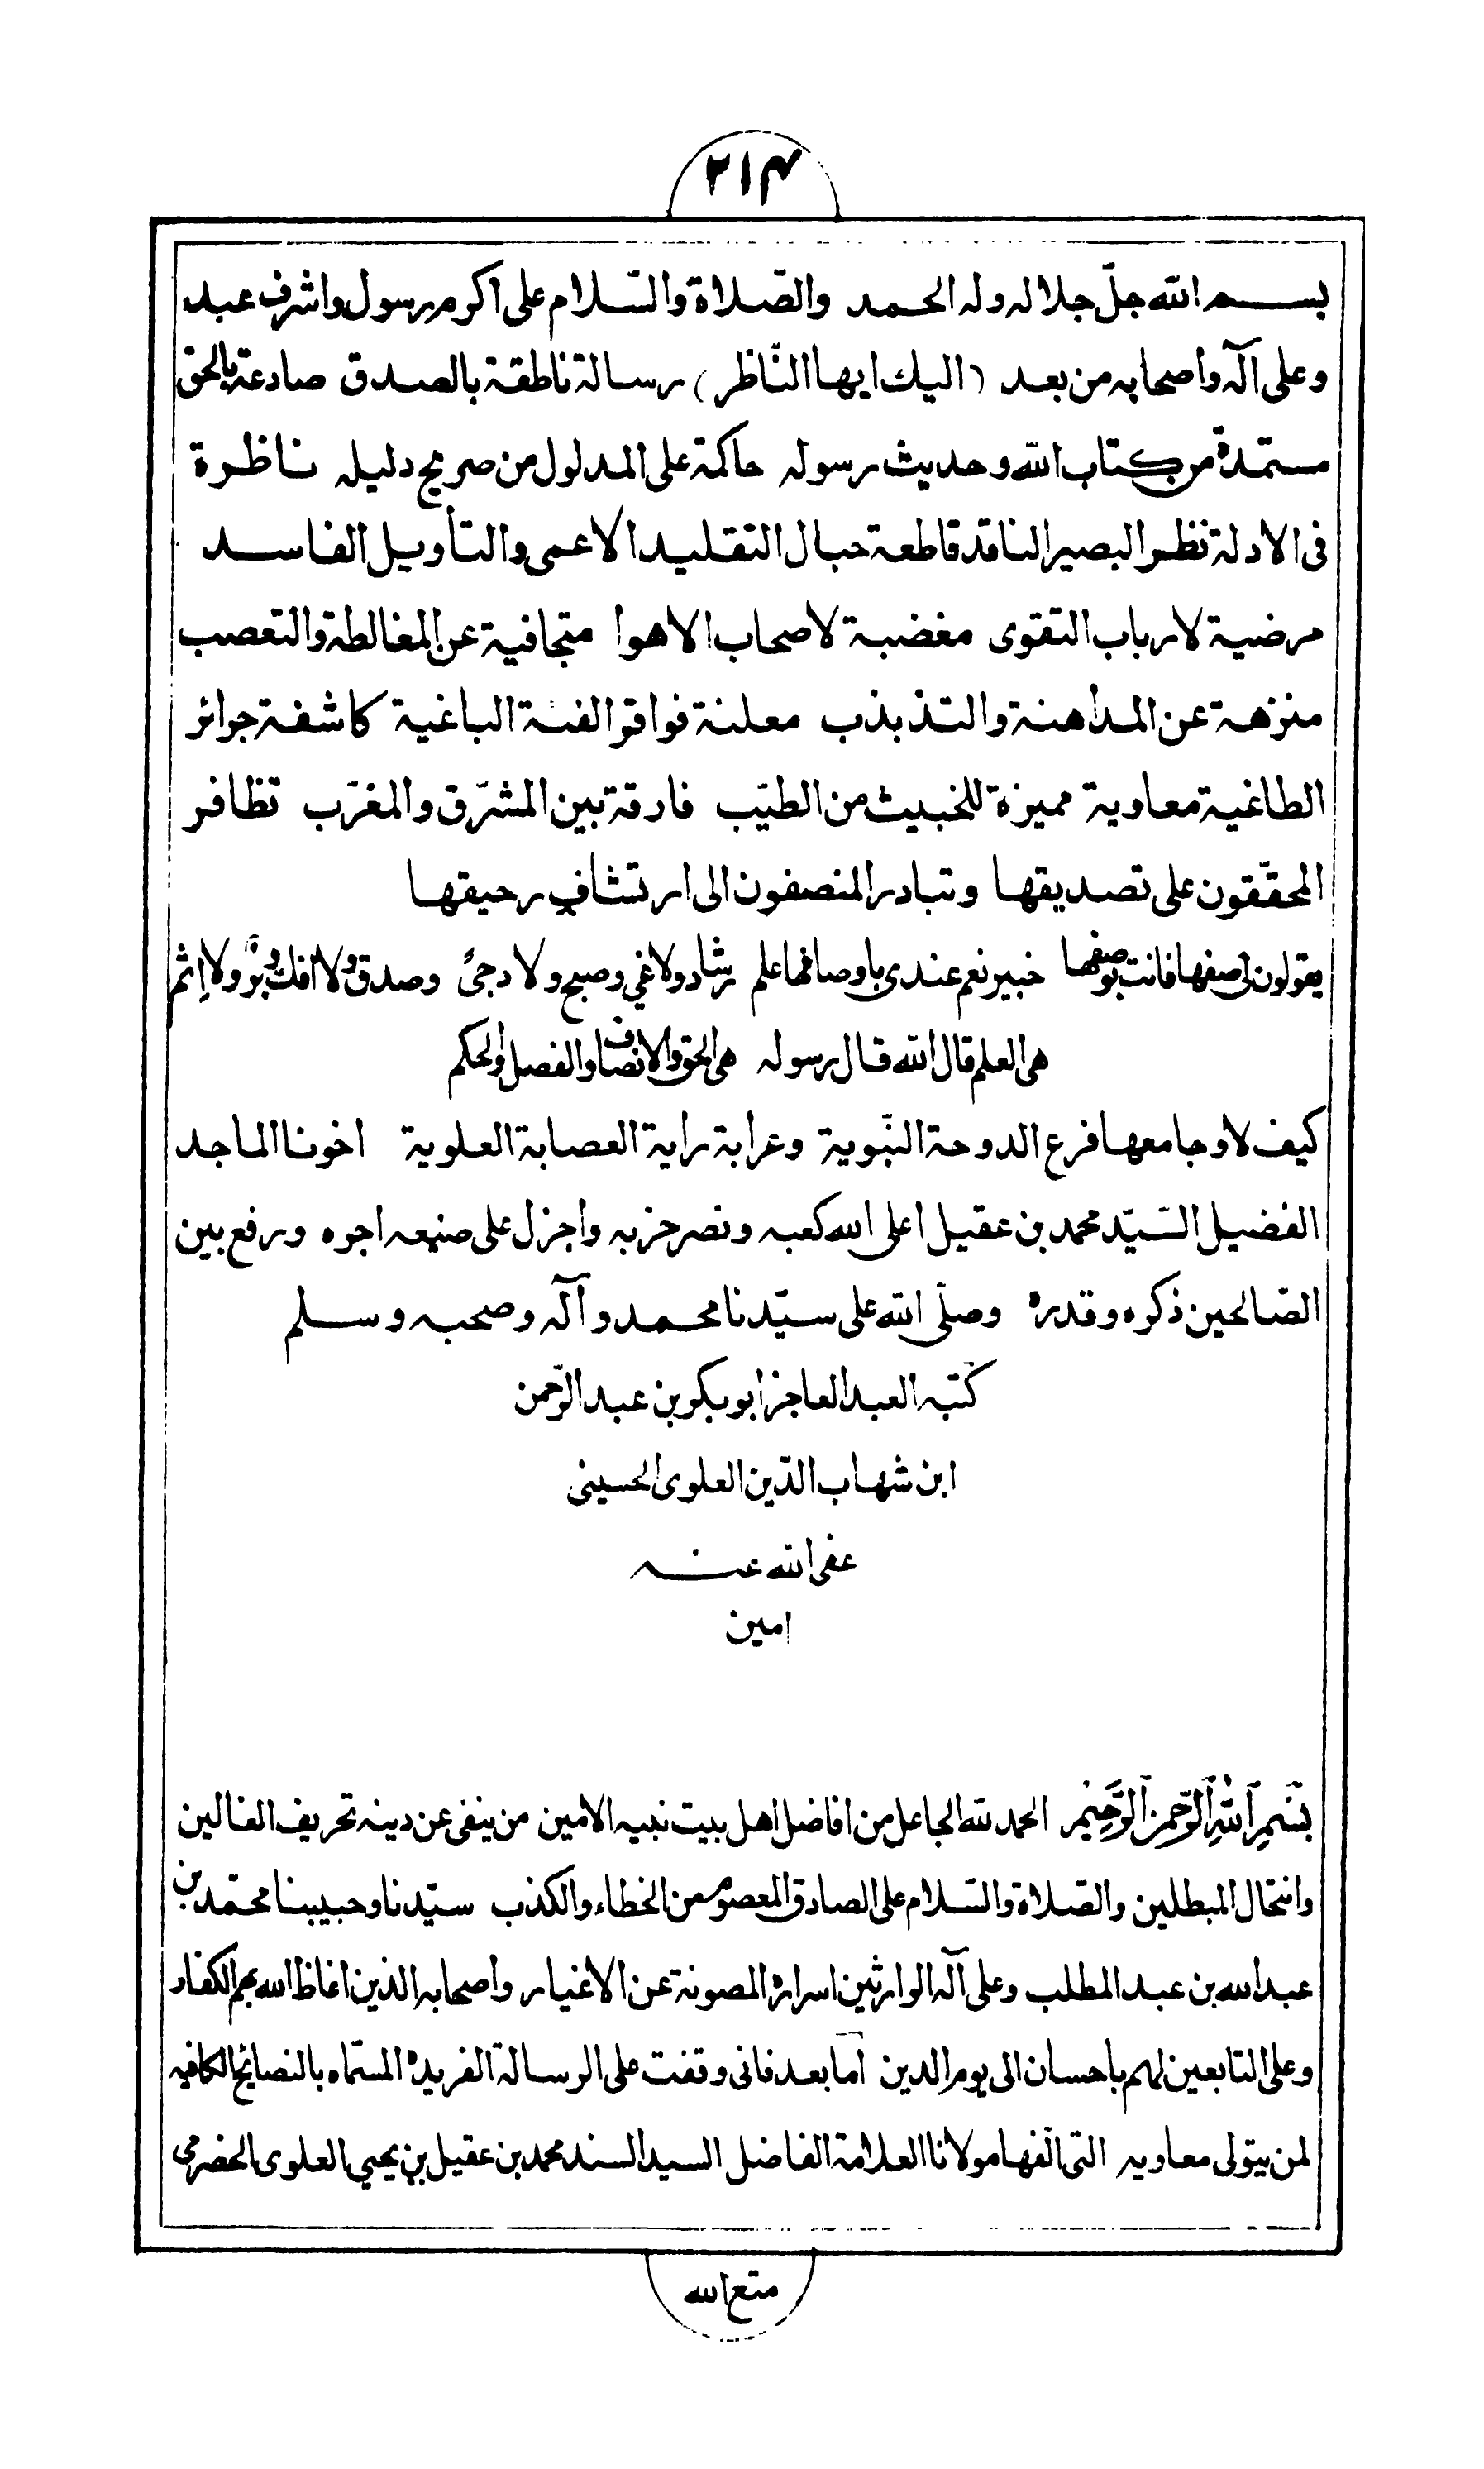 ٢١٤
بسم الله جلّ جلاله وله الحمد والصّلاة والسّلام على اكرم رسول واشرف عبد
وعلى آله واصحابه من بعد (اليك ايها النّاظر) رسالة ناطقة بالصدق صادعة بالحق
مستمدة من كتاب الله وحديث رسوله حاكمة على المدلول من صريح دليله ناظرة
فى الادلة نظر البصير الناقد قاطعة حبال التقليد الاعمى والتأويل الفاسد
مرضية لارباب التقوى مغضبة لاصحاب الاهوا متجافية عن المغالطة والتعصب
منزهة عن المداهنة والتذبذب معلنة فواقر الفئة الباغية كاشفة جرائر
الطاغية معاوية مميزة للخبيث من الطيّب فارقة بين المشرّق والمغرّب تظافر
المحقّقون على تصديقها وتبادر المنصفون الى ارتشاف رحيقها
يقولون لى صفها فانت بوصفها خبير نعم عندى باوصافها علم رشاد ولا غي وصبح ولا دجىً وصدق ولا افك وبرّ ولا اِثم
هى العلم قال الله قال رسوله هى الحق والانصاف والفصل والحكم
كيف لا وجامعها فرع الدوحة النّبوية وعرابة راية العصابة العلوية اخونا الماجد
الفضيل السّيّد محمد بن عقيل اعلى الله كعبه ونصر حزبه واجزل على صنيعه اجره ورفع بين
الصّالحين ذكره وقدره وصلّى الله على سيّدنا محمد وآله وصحبه وسلم
كتبه العبد العاجز ابو بكر بن عبد الرّحمن
ابن شهاب الدّين العلوى الحسينى
عفى الله عنه
امين
بِسْمِ اللهِ الرَّحْمنِ الرَّحِيْمِ الحمد لله الجاعل من افاضل اهل بيت نبيه الامين من ينفى عن دينه تحريف الغالين
وانتحال المبطلين والصّلاة والسّلام على الصادق المعصوم من الخطاء والكذب سيّدنا وحبيبنا محمّد بن
عبد الله بن عبد المطلب وعلى آله الوارثين اسراره المصونة عن الاغيار واصحابه الذين اغاظ الله بهم الكفار
وعلى التابعين لهم باحسان الى يوم الدين امّا بعد فانى وقفت على الرسالة الفريدة المسمّاه بالنصايح الكافيه
لمن يتولى معاويه التى الّفها مولانا العلامة الفاضل السيد السند محمد بن عقيل بن يحيى العلوى الحضرمى
متع الله